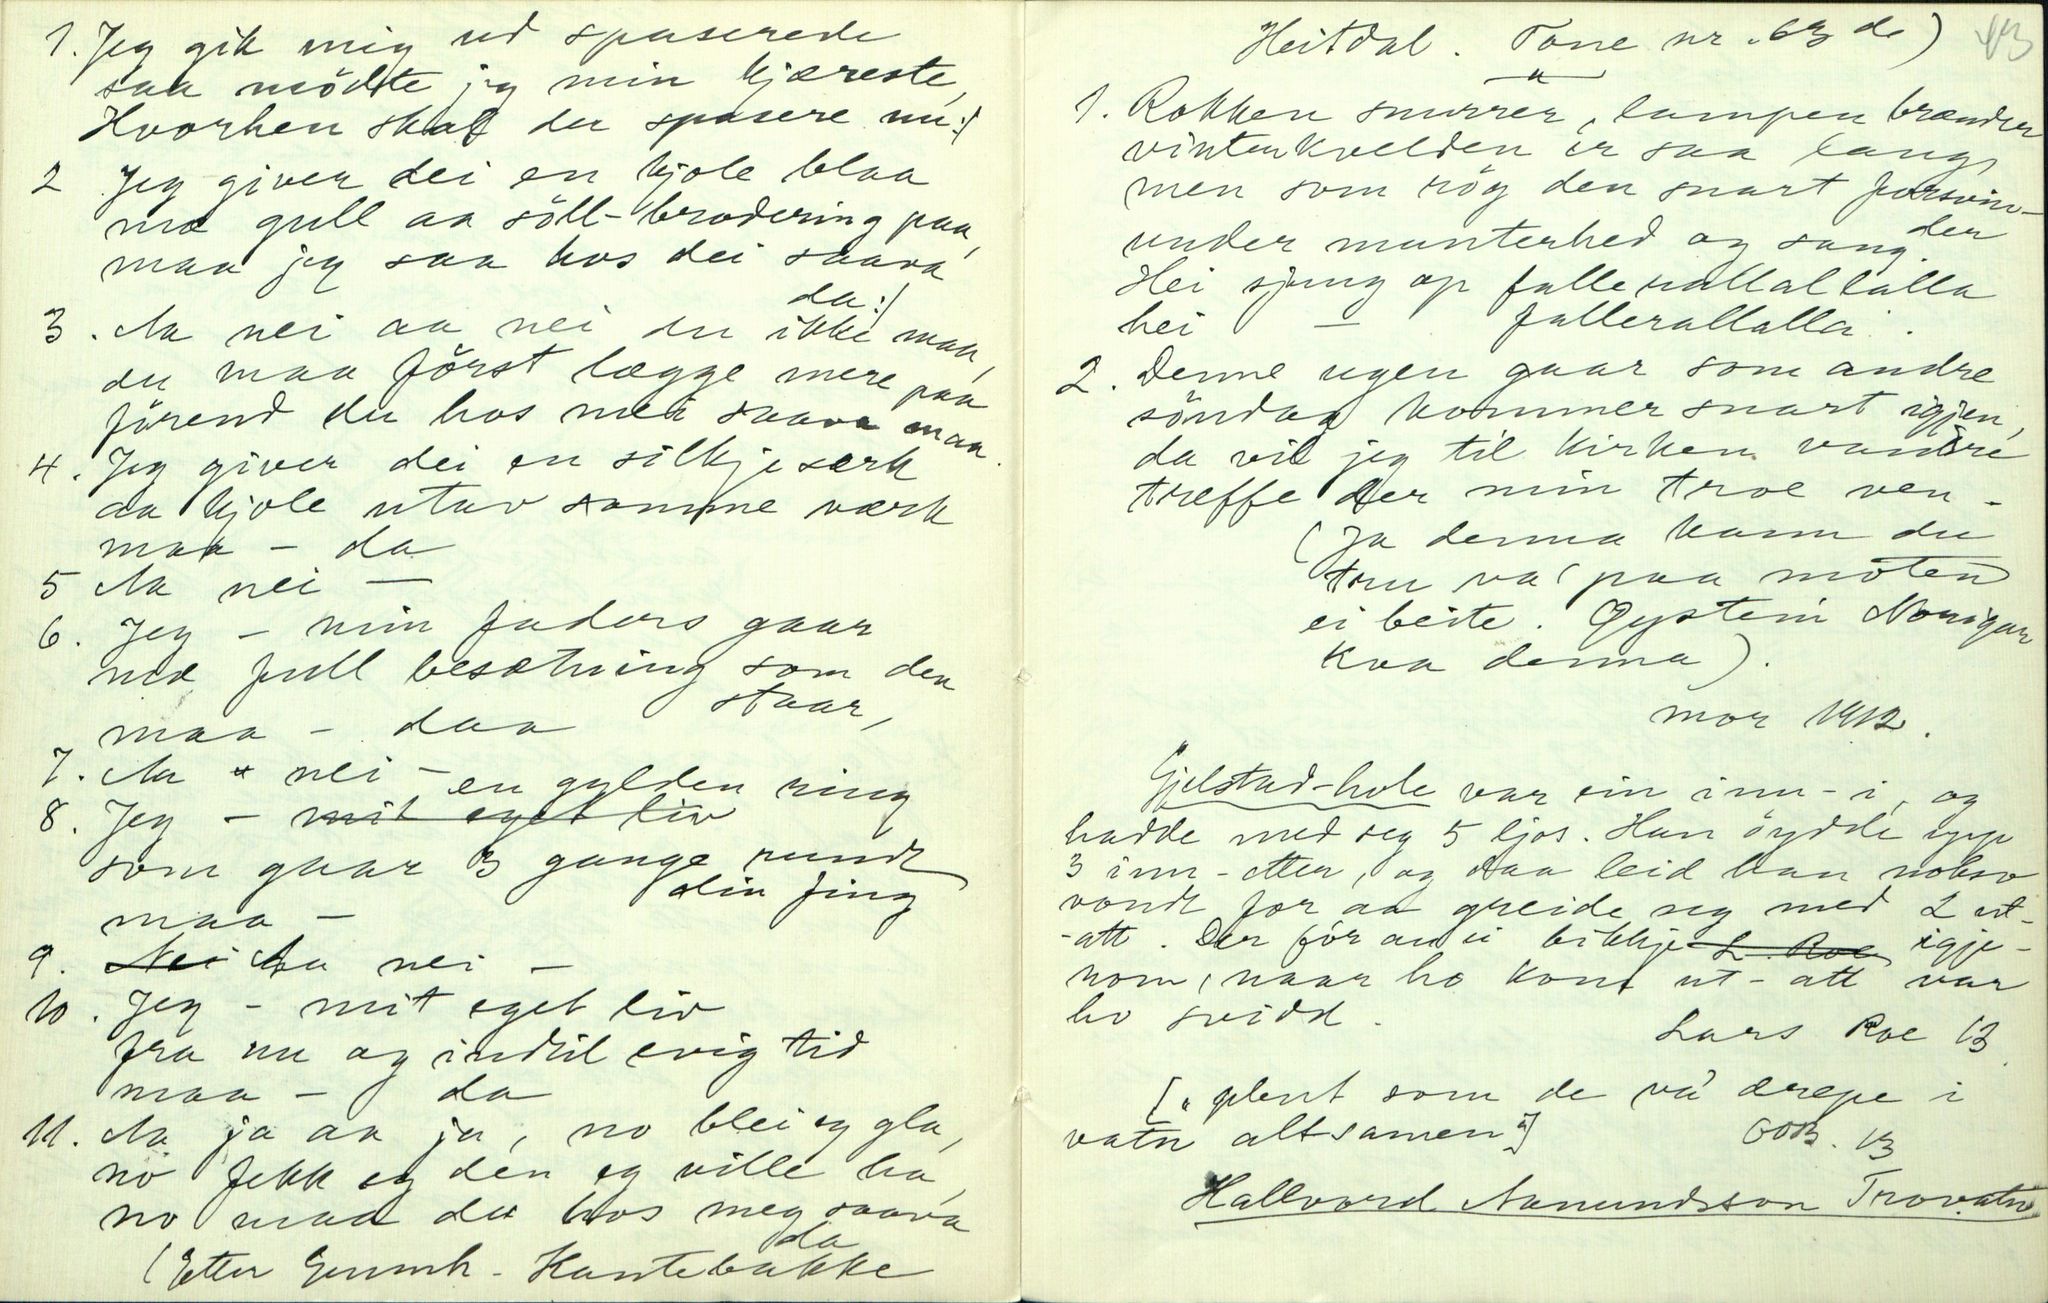 1. Jeg gik mig ud spaserede
saa mödte jeg min kjæreste,
Hvorhen skal du spasere nu:/
2 Jeg giver dei en kjole blaa
mæ gull aa söll-brodering paa,
maa jeg saa hos dei saava
da:/
3. Aa nei aa nei du ikke maa,
du maa först lægge mere paa
förend du hos mei saava maa.
4. Jeg giver dei en silkjesærk
aa kjole utav somme værk
maa - da
5 Aa nei —
6. Jeg - min faders gaar
mæ full besætning som den
staar,
maa - daa
7. Aa nei -
en gylden ring
8. Jeg - mit eget liv
som gaar 3 gange rundt
din fing
maa -
9. Nei Aa nei -
10. Jeg - mit eget liv
fra nu og indtil evig tid
maa - da
11. Aa ja aa ja, no blei eg gla,
no fekk eg den eg ville ha,
no maa du hos meg saava
da
(Etter Gunnh. Kantebakke
43
Heitdal. Tone nr. 63 do)
1. Rokken snurrer, lampen brænder
vinterkvelden er saa lang,
men som rög den snart forsvin-
der
under munterhed og sang.
Hei sjung op fallerallallalla
hei — fallerallalla.
2. Denne ugen gaar som andre
söndag kommer snart igjen,
da vil jeg til kirken vandre
træffe der min troe ven -
(Ja denna kann du
tru va' paa moten
ei beite. Øystein Norigar
kva denna).
mor 1912.
Gjelstad-hole var ein inn-i, og
hadde med seg 5 ljos. Han öydde upp
3 inn-etter, og daa leid han nokso
vondt for aa greide seg med 2 ut-
-att. Der för au ei bikkje L. Roe igje-
nom, naar ho kom ut-att var
ho svidd.
Lars Roe 13
[" plent som de va' drepe i
vatn altsamen"]
GOB. 13
Hallvord Aamundsson Trovatn